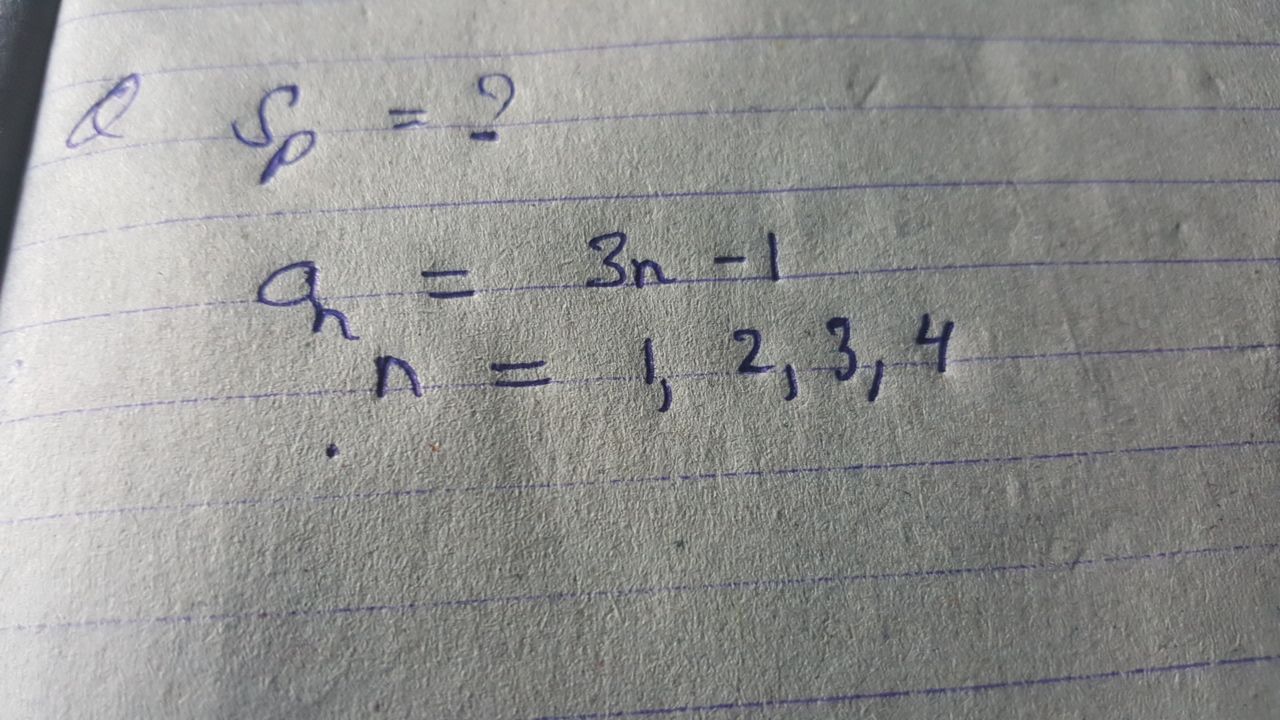 Q Sp = ?
an = 3n - 1
n = 1, 2, 3, 4